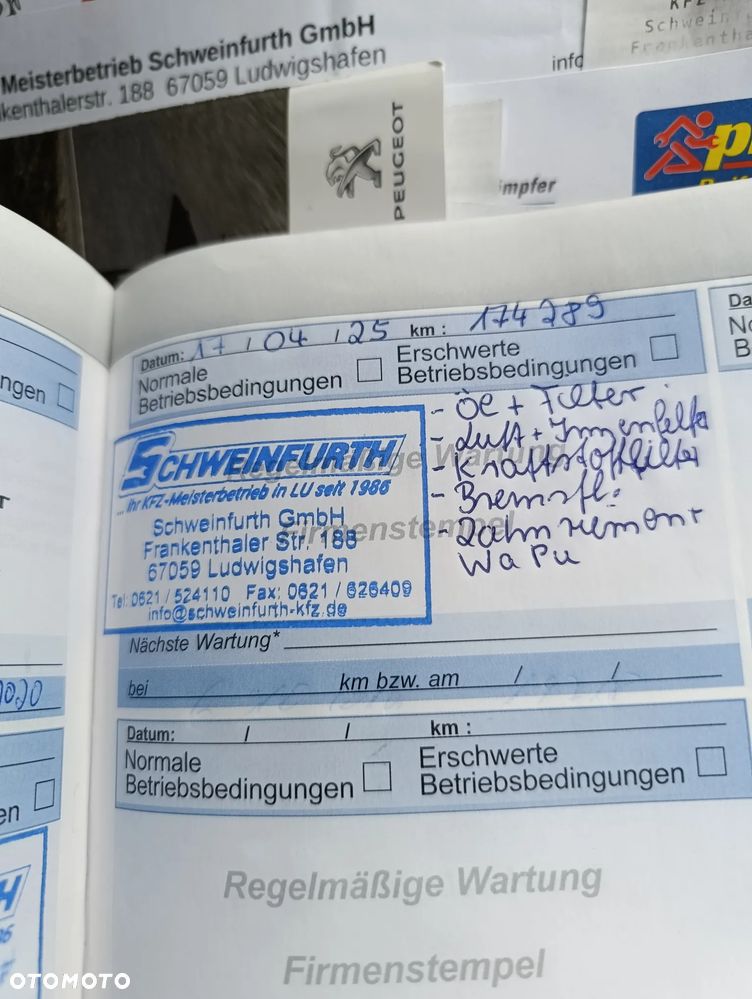 Meisterbetrieb Schweinfurth GmbH
kenthalerstr. 188 67059 Ludwigshafen
info
Schwein
Frankentha
PEUGEOT
mpfer
Datum: 17 / 04 / 25 km : 174289
Normale Betriebsbedingungen
Erschwerte Betriebsbedingungen
ngen
Da
No
B
SCHWEINFURTH
...Ihr KFZ-Meisterbetrieb in LU seit 1986
Schweinfurth GmbH
Frankenthaler Str. 188
67059 Ludwigshafen
Tel: 0621 / 524110 Fax: 0621 / 626409
info@schweinfurth-kfz.de
Regelmäßige Wartung
Firmenstempel
- Öl + Filter
- Luft + Innenfilter
- Kraftstofffilter
- Bremsfl.
- Zahnriemen +
WaPu
Nächste Wartung*
bei km bzw. am / /
Datum: / / km :
Normale Betriebsbedingungen
Erschwerte Betriebsbedingungen
en
Regelmäßige Wartung
Firmenstempel
OTOMOTO